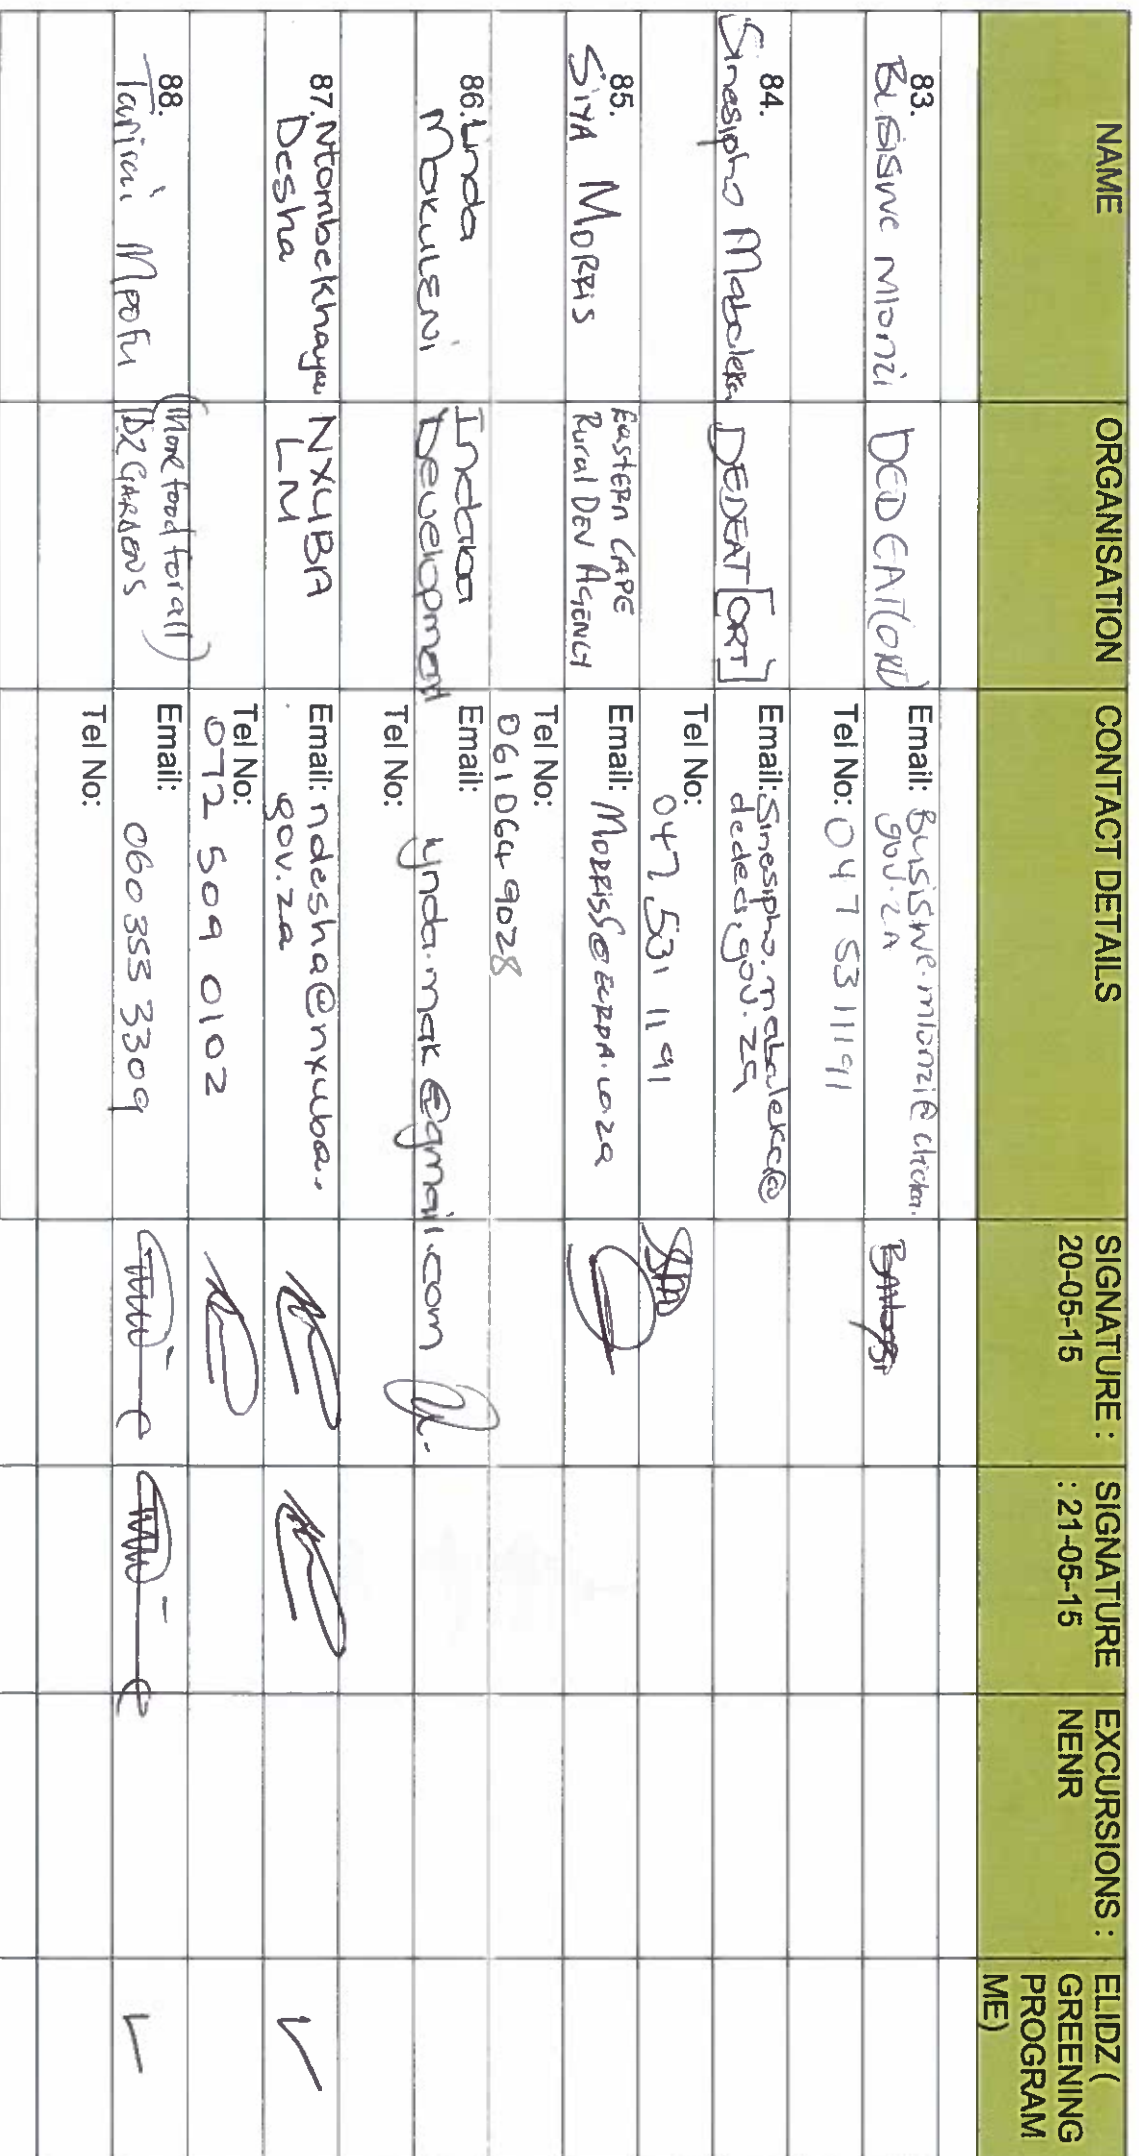 NAME
ORGANISATION
CONTACT DETAILS
SIGNATURE :
20-05-15
SIGNATURE
: 21-05-15
EXCURSIONS :
NENR
ELIDZ (
GREENING
PROGRAM
ME)
83.
Busisiwe Mlonzi
DEDEAT(ORT)
Email: Busisiwe.mlonzi@
gov.za
Tel No: 047 531 1191
84.
Sinesipho Mabaleka
DEDEAT [ORT]
Email: Sinesipho.mabaleka@
dedea.gov.za
Tel No:
047 531 1191
85.
SIYA MORRIS
EASTERN CAPE
Rural DEV AGENCY
Email: MORRISS@ECRDA.co.za
Tel No:
061 064 9028
86. Linda
MAKULENI
Indaba
Development
Email: lynda.mak@gmail.com
Tel No:
87. Ntombekhaya
Desha
NXUBA
LM
Email: ndesha@nxuba.
gov.za
Tel No:
072 509 0102
88.
Tafirai Mpofu
(More food for all)
DZ GARDENS
Email: 060 355 3309
Tel No: